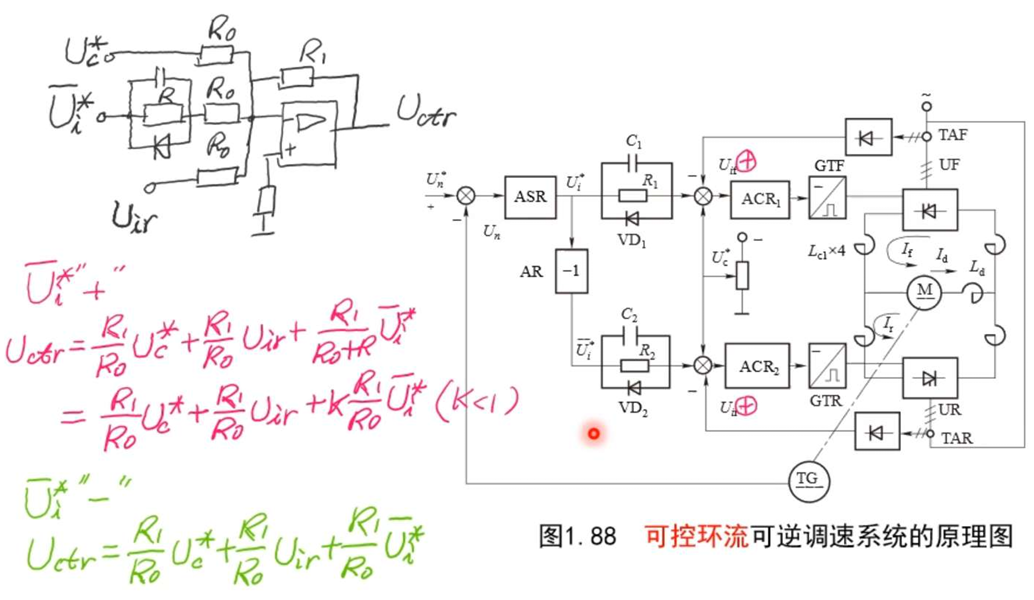 U_c^*
R_0
R_1
\overline{U}_i^*
R
R_0
U_{ctr}
+
R_0
U_{ir}
\overline{U}_i^* "+"
U_{ctr} = \frac{R_1}{R_0} U_c^* + \frac{R_1}{R_0} U_{ir} + \frac{R_1}{R_0+R} \overline{U}_i^*
= \frac{R_1}{R_0} U_c^* + \frac{R_1}{R_0} U_{ir} + K \frac{R_1}{R_0} \overline{U}_i^* (K<1)
\overline{U}_i^* "-"
U_{ctr} = \frac{R_1}{R_0} U_c^* + \frac{R_1}{R_0} U_{ir} + \frac{R_1}{R_0} \overline{U}_i^*
~
TAF
C_1
U_{if} +
GTF
UF
U_n^*
+
−
U_n
ASR
U_i^*
R_1
VD_1
−
ACR_1
−
AR
−1
U_c^*
−
L_{c1}×4
I_f
I_d
L_d
M
I_r
C_2
\overline{U}_i^*
R_2
VD_2
−
ACR_2
−
GTR
+
UR
TAR
TG
图1.88 可控环流可逆调速系统的原理图